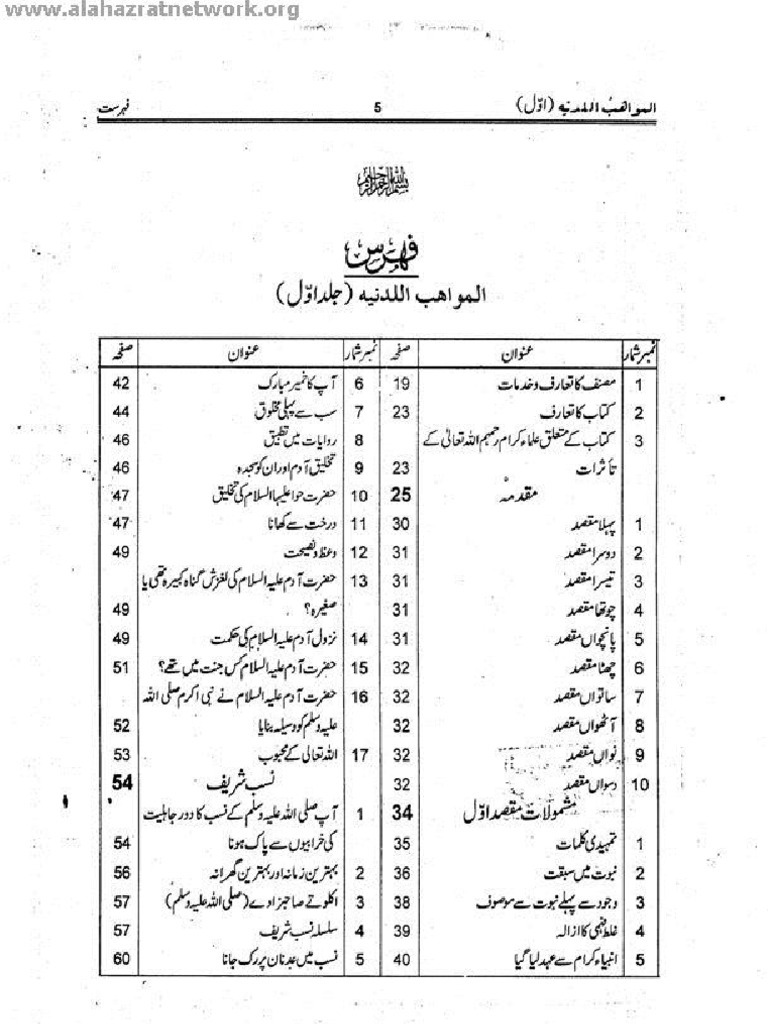 www.alahazratnetwork.org
المواهب اللدنیہ (اوّل) 5 فہرست
بسم اللہ الرحمن الرحیم
فہرس
المواهب اللدنیه (جلد اوّل)
نمبر شمار عنوان صفحہ
1 مصنف کا تعارف و خدمات 19
2 کتاب کا تعارف 23
3 کتاب کے متعلق علماء کرام رحمہم اللہ تعالیٰ کے
تاثرات 23
مقدمہ 25
1 پہلا مقصد 30
2 دوسرا مقصد 31
3 تیسرا مقصد 31
4 چوتھا مقصد 31
5 پانچواں مقصد 31
6 چھٹا مقصد 32
7 ساتواں مقصد 32
8 آٹھواں مقصد 32
9 نواں مقصد 32
10 دسواں مقصد 32
مشمولات مقصد اوّل 34
1 تمہیدی کلمات 35
2 نبوت میں سبقت 36
3 وجود سے پہلے نبوت سے موصوف 38
4 غلط فہمی کا ازالہ 39
5 انبیاء کرام سے عہد لیا گیا 40
نمبر شمار عنوان صفحہ
6 آپ کا خمیر مبارک 42
7 سب سے پہلی مخلوق 44
8 روایات میں تطبیق 46
9 تخلیق آدم اور ان کو سجدہ 46
10 حضرت حوا علیہا السلام کی تخلیق 47
11 درخت سے کھانا 47
12 وعظ و نصیحت 49
13 حضرت آدم علیہ السلام کی لغزش گناہ کبیرہ تھی یا
صغیرہ؟ 49
14 نزول آدم علیہ السلام کی حکمت 49
15 حضرت آدم علیہ السلام کس جنت میں تھے؟ 51
16 حضرت آدم علیہ السلام نے نبی اکرم صلی اللہ
علیہ وسلم کو وسیلہ بنایا 52
17 اللہ تعالیٰ کے محبوب 53
نسب شریف 54
1 آپ صلی اللہ علیہ وسلم کے نسب کا دور جاہلیت
کی خرابیوں سے پاک ہونا 54
2 بہترین زمانہ اور بہترین گھرانہ 56
3 اکلوتے صاحبزادے (صلی اللہ علیہ وسلم) 57
4 سلسلہ نسب شریف 57
5 نسب میں عدنان پر رک جانا 60